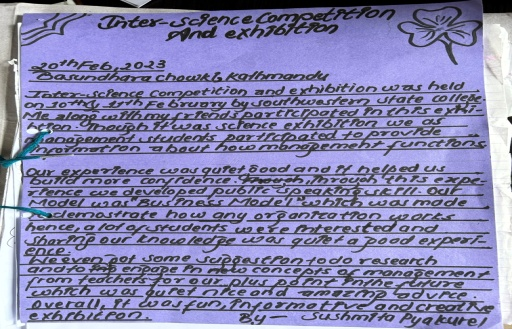 Inter-science Competition
And exhibition
20th Feb, 2023
Basundhara chowk, Kathmandu
Inter-science Competition and exhibition was held
on 10th & 11th February by southwestern state college.
Me along with my friends participated in this exhi-
bition. Though it was science exhibition we as
management students participated to provide
information about how management functions.
Our experience was quiet good and it helped us
build more confident through this expe-
rience we developed public speaking skill. Our
Model was "Business Model" which was made
to demonstrate how any organization works
hence, a lot of students were interested and
sharing our knowledge was quiet a good experi-
ence.
We even got some suggestion to do research
and to engage in new concepts of management
from teachers for our plus point in the future
which was quiet nice and amazing advice.
Overall, it was fun, informative and creative
exhibition. By- Sushmita Pyakurel